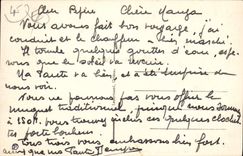 Cher Pépé Chère
Nous avons fait bon voyage j'ai
conduit et le chauffeur bien marché
Il tombe quelques gouttes d'eau, espé-
rons que le soleil va revenir.
La Tante va bien et a été surprise de
nous voir.
Ne pouvons pas vous offrir le
muguet traditionnel, puisque nous sommes
à 1500m. vous trouverez ci-joins ces quelques cloches
porte bonheur.
Tous trois vous embrassons bien fort.
ainsi que ma Tante